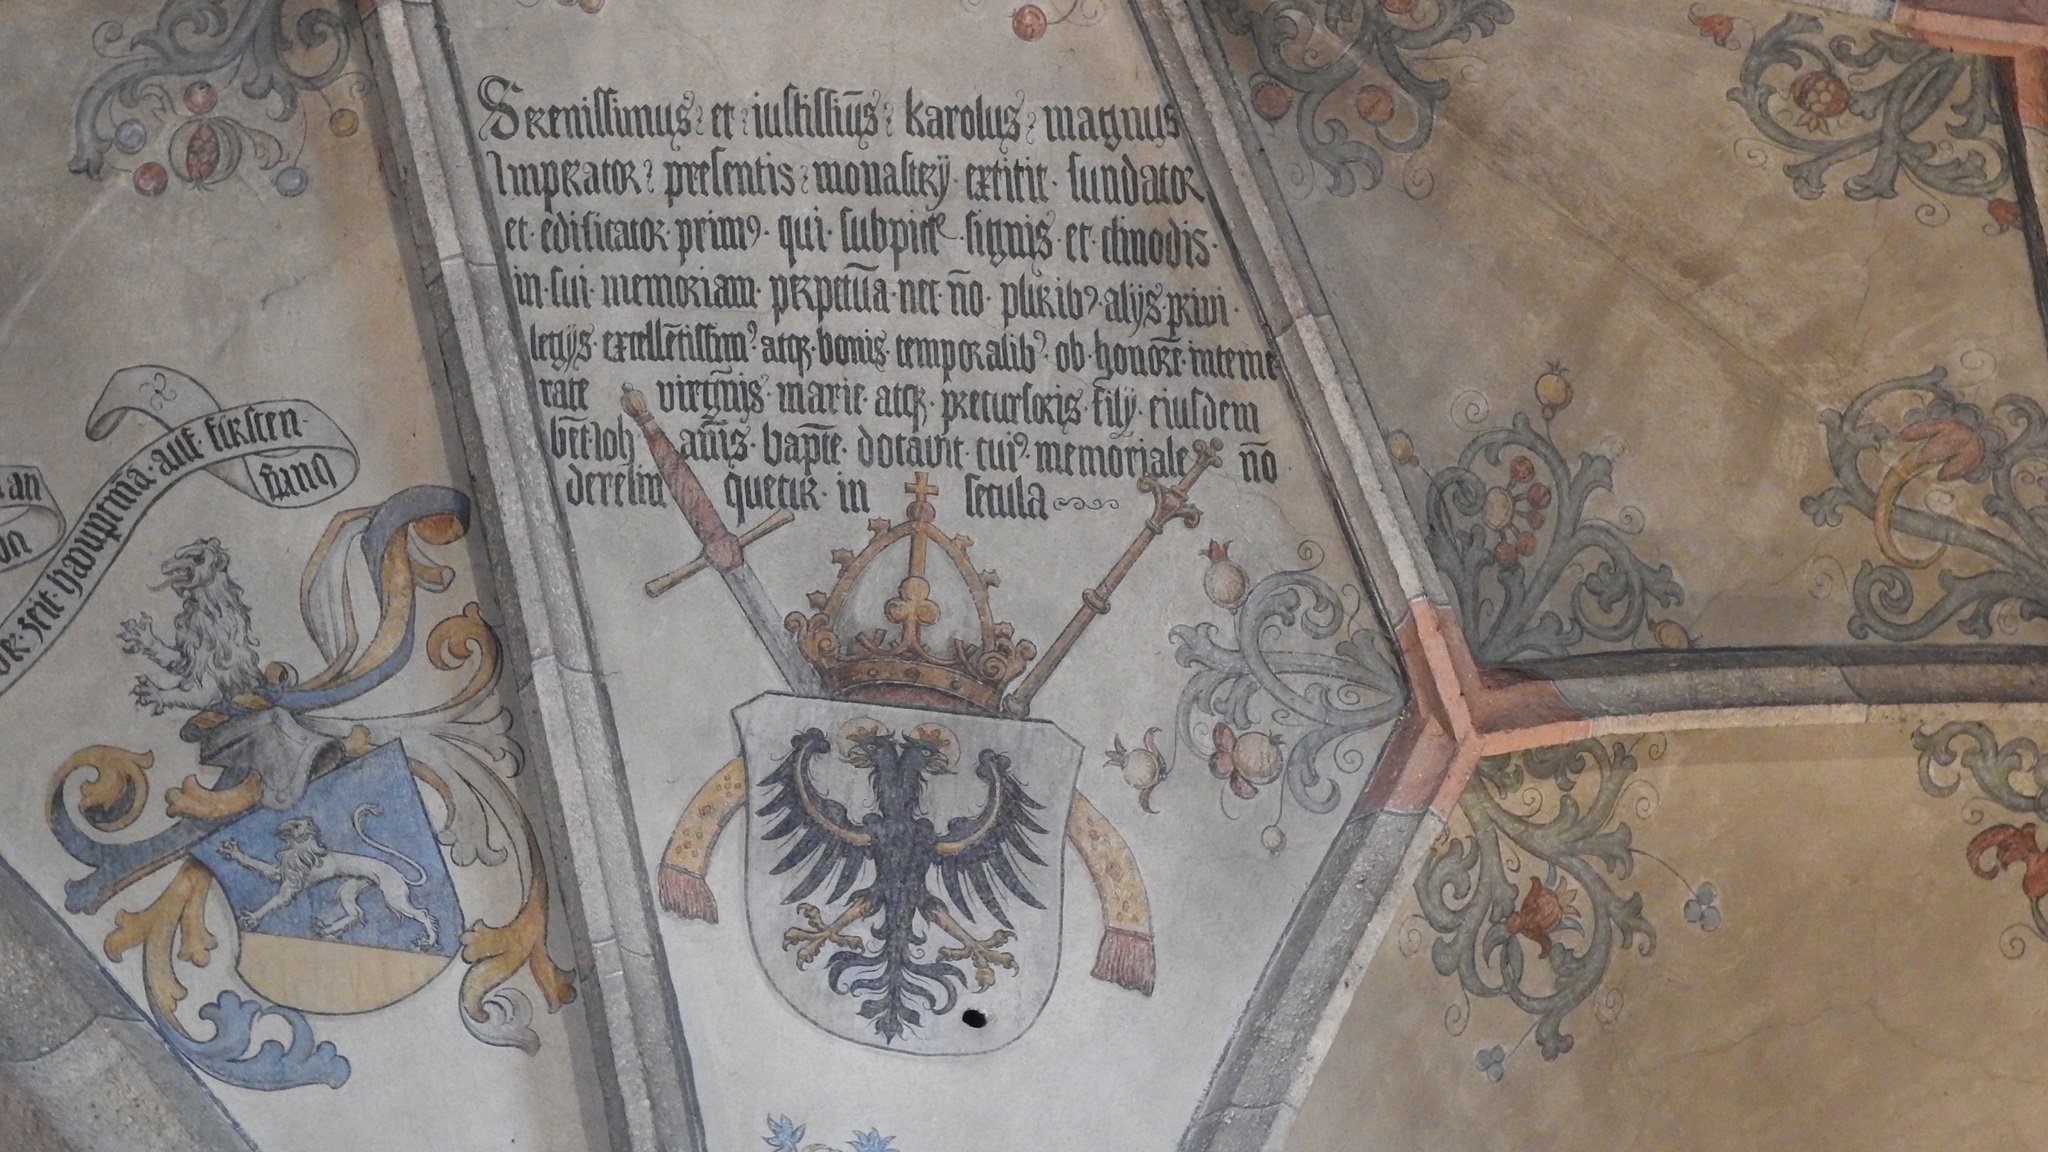 Serenissimus et iustissiu̅s karolus magnus
Imperator presentis monastery extitit fundator
et edificator primꝰ qui subpict signis et clinodis
in sui memoriam perpetu̅a nec n̅o pluribꝰ alijs privi
legijs excelle̅tissimꝰ atqꝫ bonis temporalibꝰ ob honore̅ inteme
rate virg̅nis marie atqꝫ precursoris filÿ eiusdem
b̅et Joh an̅is bap̅te dotavit cuiꝰ memoriale n̅o
derelin quetur in secula
or zeit haupttma auf fürsten
burg
an